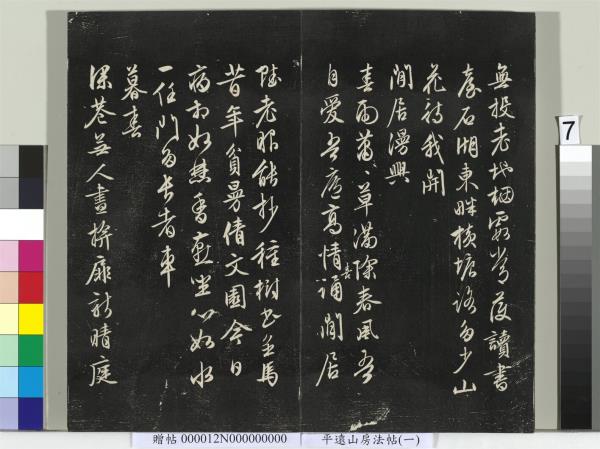 無投老地栖霞尚讀書
臺石湖東畔橫塘路多少山
花待我開
閒居漫興
春雨蕭〻草滿除春風吾
自愛吾廬高情喜誦閒居
賦老眼能抄種樹書金馬
昔年貧曼倩文園今日
病相如焚香燕坐心如水
一任門多長者車
暮春
深巷無人晝掩扉新晴庭
7
贈帖 000012N000000000 平遠山房法帖(一)